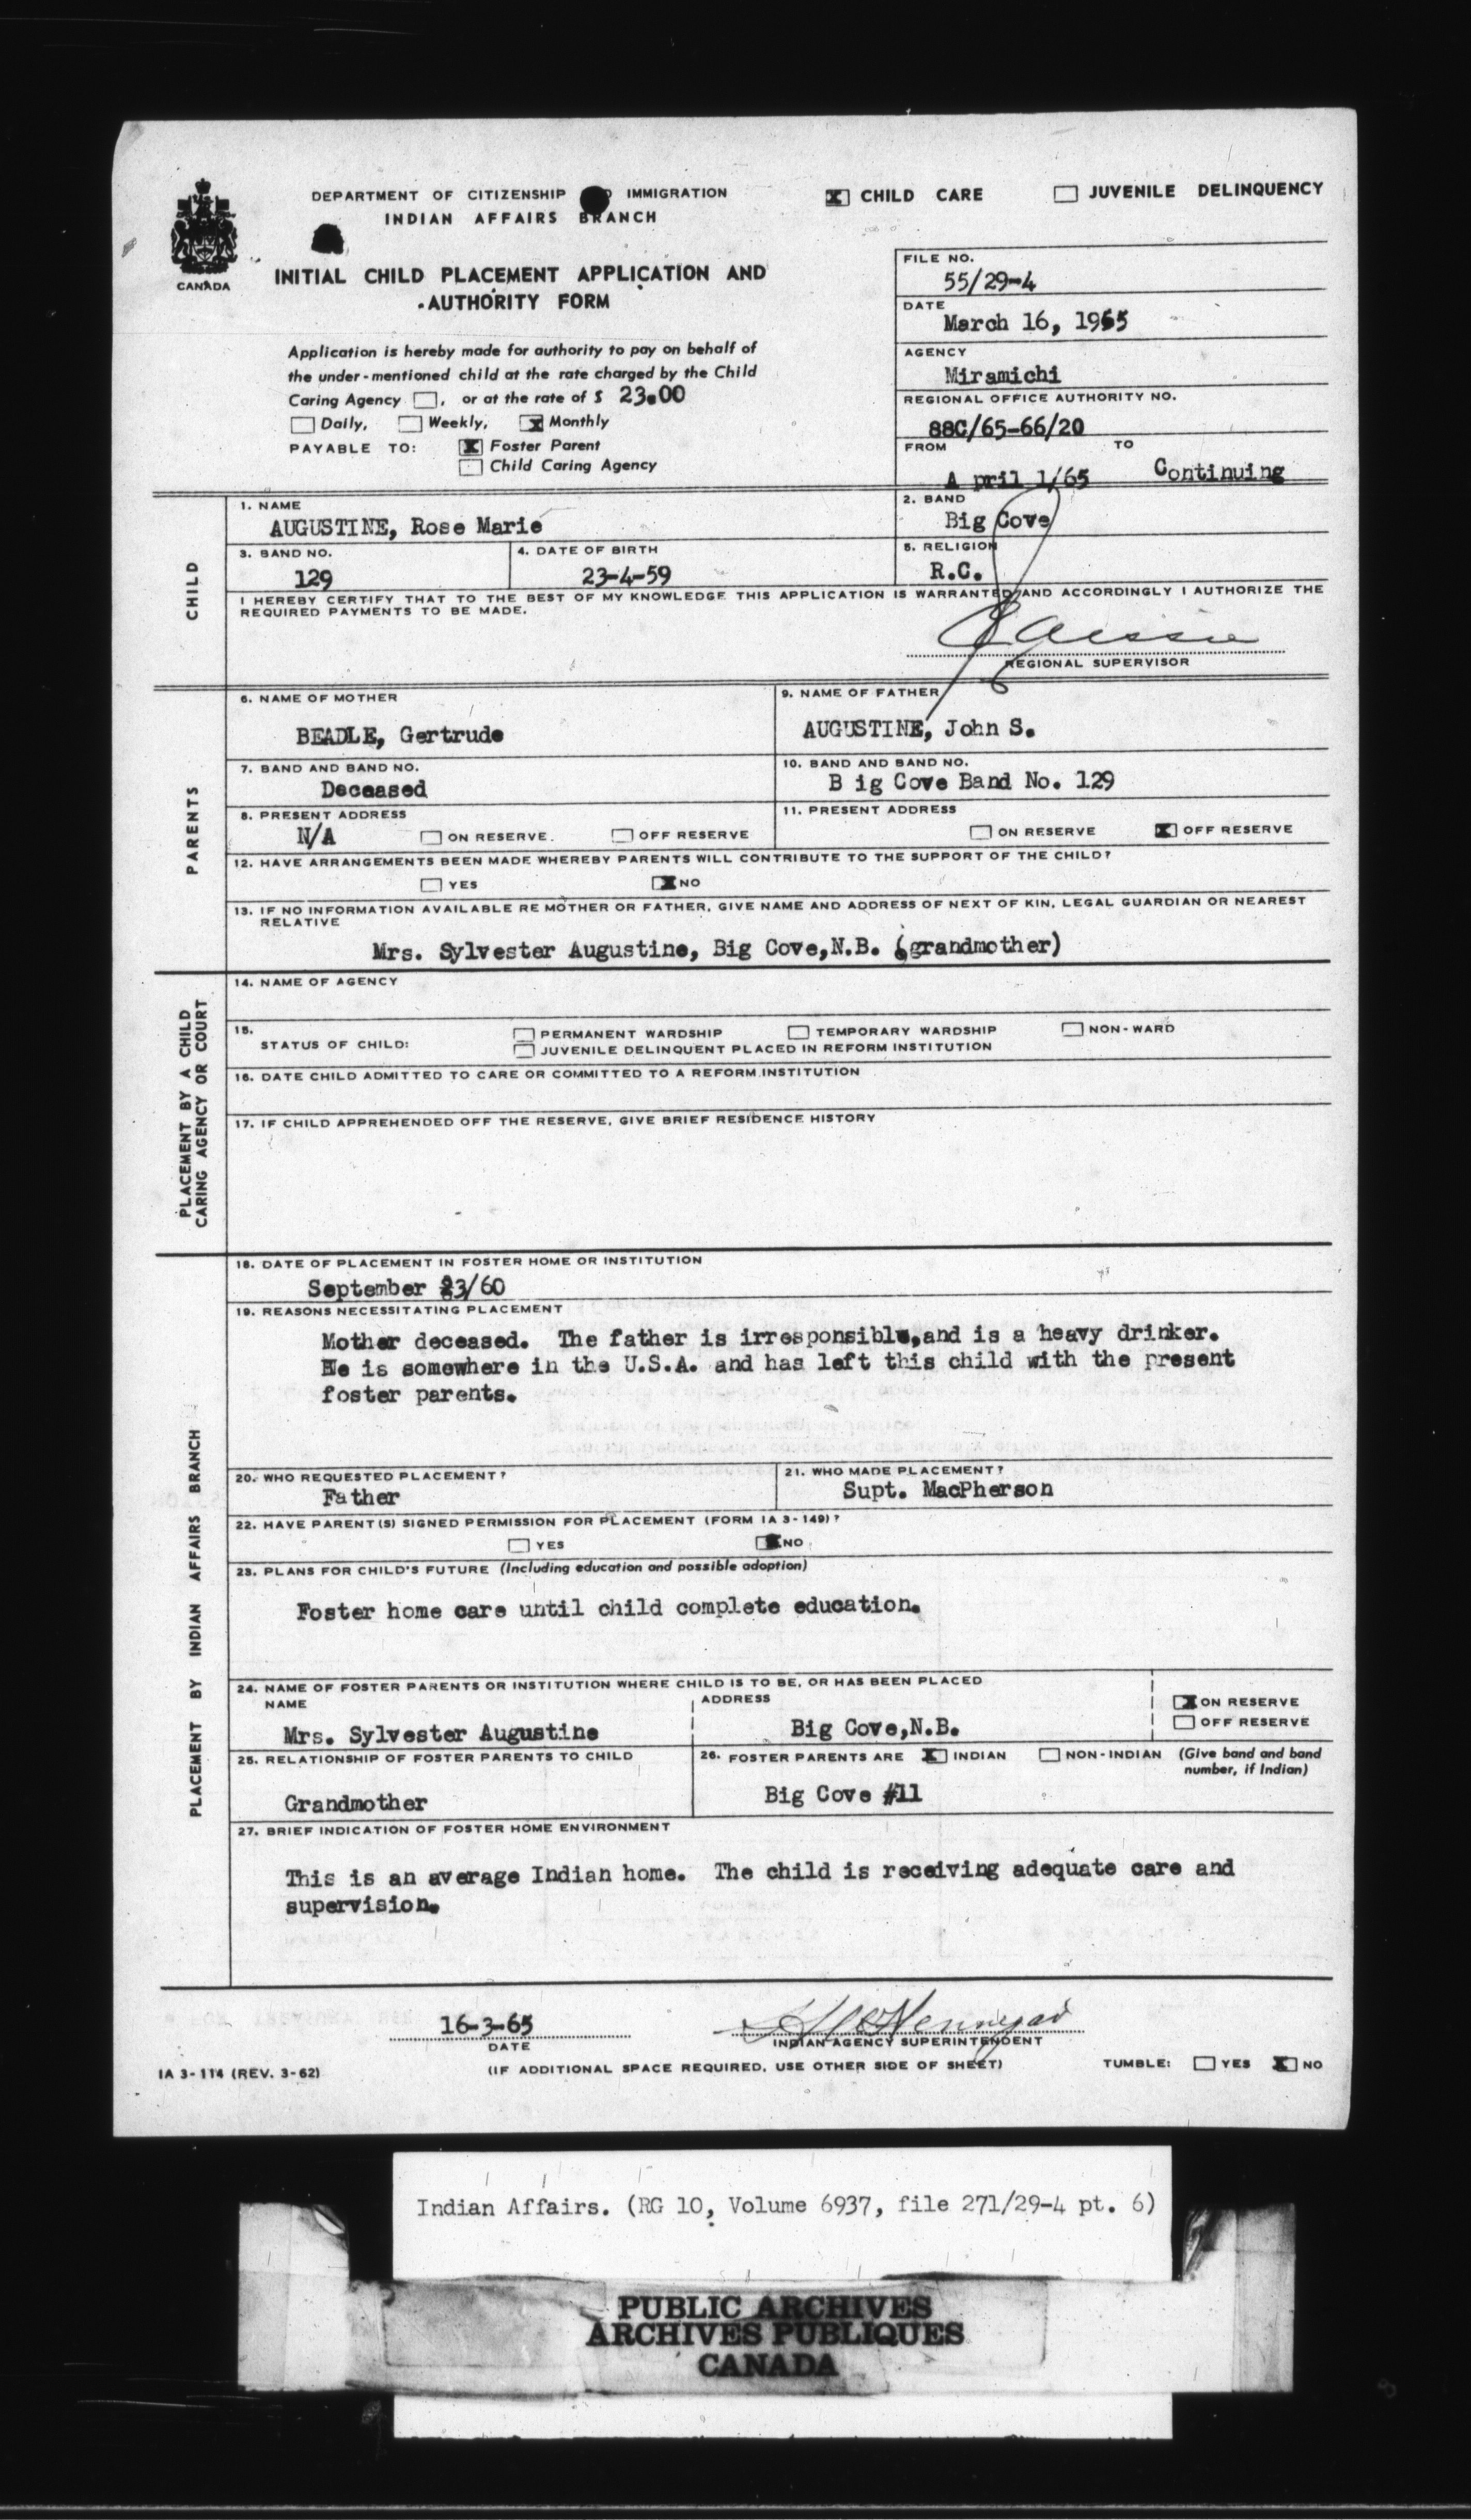 DEPARTMENT OF CITIZENSHIP IMMIGRATION
INDIAN AFFAIRS BRANCH
CANADA
INITIAL CHILD PLACEMENT APPLICATION AND
AUTHORITY FORM
Application is hereby made for authority to pay on behalf of
the under-mentioned child at the rate charged by the Child
Caring Agency , or at the rate of $ 23.00
Daily, Weekly, x Monthly
PAYABLE TO: x Foster Parent
Child Caring Agency
x CHILD CARE JUVENILE DELINQUENCY
FILE NO.
55/29-4
DATE
March 16, 1965
AGENCY
Miramichi
REGIONAL OFFICE AUTHORITY NO.
88C/65-66/20
FROM TO
A pril 1/65 Continuing
CHILD
1. NAME
AUGUSTINE, Rose Marie
2. BAND
Big Cove
3. BAND NO.
129
4. DATE OF BIRTH
23-4-59
5. RELIGION
R.C.
I HEREBY CERTIFY THAT TO THE BEST OF MY KNOWLEDGE THIS APPLICATION IS WARRANTED AND ACCORDINGLY I AUTHORIZE THE
REQUIRED PAYMENTS TO BE MADE.
REGIONAL SUPERVISOR
PARENTS
6. NAME OF MOTHER
BEADLE, Gertrude
9. NAME OF FATHER
AUGUSTINE, John S.
7. BAND AND BAND NO.
Deceased
10. BAND AND BAND NO.
B ig Cove Band No. 129
8. PRESENT ADDRESS
N/A ON RESERVE. OFF RESERVE
11. PRESENT ADDRESS
ON RESERVE x OFF RESERVE
12. HAVE ARRANGEMENTS BEEN MADE WHEREBY PARENTS WILL CONTRIBUTE TO THE SUPPORT OF THE CHILD?
YES x NO
13. IF NO INFORMATION AVAILABLE RE MOTHER OR FATHER, GIVE NAME AND ADDRESS OF NEXT OF KIN, LEGAL GUARDIAN OR NEAREST
RELATIVE
Mrs. Sylvester Augustine, Big Cove,N.B. (grandmother)
PLACEMENT BY A CHILD
CARING AGENCY OR COURT
14. NAME OF AGENCY
15.
STATUS OF CHILD:
PERMANENT WARDSHIP TEMPORARY WARDSHIP NON-WARD
JUVENILE DELINQUENT PLACED IN REFORM INSTITUTION
16. DATE CHILD ADMITTED TO CARE OR COMMITTED TO A REFORM INSTITUTION
17. IF CHILD APPREHENDED OFF THE RESERVE, GIVE BRIEF RESIDENCE HISTORY
PLACEMENT BY INDIAN AFFAIRS BRANCH
18. DATE OF PLACEMENT IN FOSTER HOME OR INSTITUTION
September 23/60
19. REASONS NECESSITATING PLACEMENT
Mother deceased. The father is irresponsible,and is a heavy drinker.
He is somewhere in the U.S.A. and has left this child with the present
foster parents.
20. WHO REQUESTED PLACEMENT?
Father
21. WHO MADE PLACEMENT?
Supt. MacPherson
22. HAVE PARENT(S) SIGNED PERMISSION FOR PLACEMENT (FORM IA 3-149)?
YES x NO
23. PLANS FOR CHILD'S FUTURE (Including education and possible adoption)
Foster home care until child complete education.
24. NAME OF FOSTER PARENTS OR INSTITUTION WHERE CHILD IS TO BE, OR HAS BEEN PLACED
NAME ADDRESS
Mrs. Sylvester Augustine Big Cove,N.B.
x ON RESERVE
OFF RESERVE
25. RELATIONSHIP OF FOSTER PARENTS TO CHILD
Grandmother
26. FOSTER PARENTS ARE x INDIAN NON-INDIAN (Give band and band
number, if Indian)
Big Cove #11
27. BRIEF INDICATION OF FOSTER HOME ENVIRONMENT
This is an average Indian home. The child is receiving adequate care and
supervision.
16-3-65
DATE
INDIAN AGENCY SUPERINTENDENT
IA 3-114 (REV. 3-62)
(IF ADDITIONAL SPACE REQUIRED, USE OTHER SIDE OF SHEET)
TUMBLE: YES x NO
Indian Affairs. (RG 10, Volume 6937, file 271/29-4 pt. 6)
PUBLIC ARCHIVES
ARCHIVES PUBLIQUES
CANADA